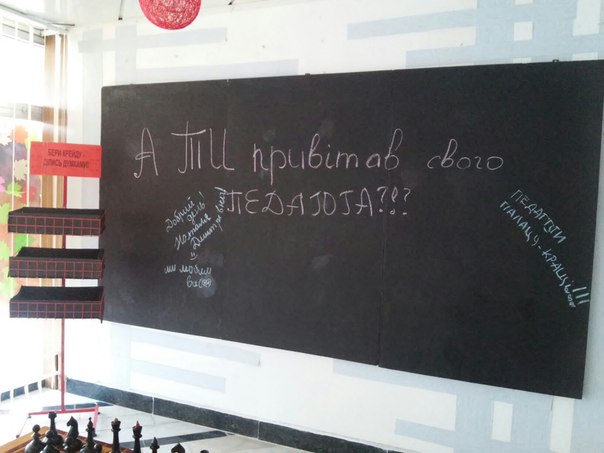 БЕРИ КРЕЙДУ -
ДІЛИСЬ ДУМКАМИ!
А ТИ привітав свого
ПЕДАГОГА?!?
Добрий
день!
ми любим
все
ПЕДАГОГИ
ПАЛАЦУ-КРАЩІ!!!